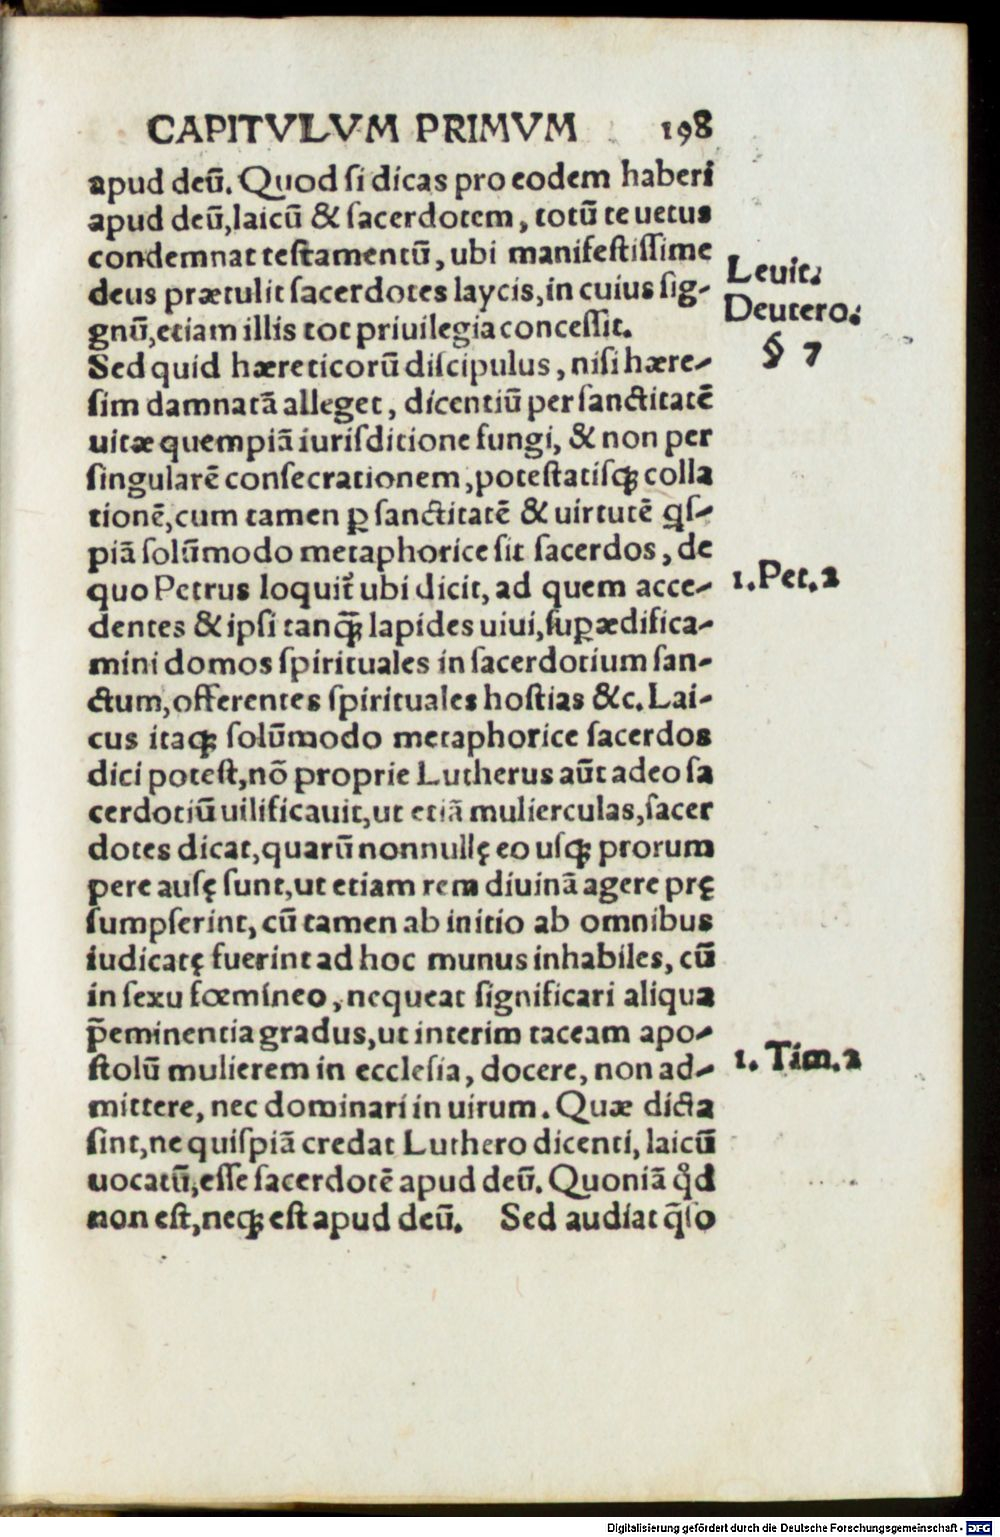 CAPITVLVM PRIMVM 198
apud deū. Quod ſi dicas pro eodem haberi
apud deū, laicū & ſacerdotem, totū te uetus
condemnat teſtamentū, ubi manifeſtiſſime
deus prætulit ſacerdotes laycis, in cuius ſig-
gnū, etiam illis tot priuilegia conceſſit.
Leuit.
Deutero.
§ 7
Sed quid hæreticorū diſcipulus, niſi hære-
ſim damnatā alleget, dicentiū per ſanctitatē
uitæ quempiā iuriſditione fungi, & non per
ſingularē conſecrationem, poteſtatiſqꝫ colla
tionē, cum tamen ꝑ ſanctitatē & uirtutē qſ-
piā ſolūmodo metaphorice ſit ſacerdos, de
quo Petrus loquit᷑ ubi dicit, ad quem acce-
1. Pet. 2
dentes & ipſi tanq̄ꝫ lapides uiui, ſuꝑædifica-
mini domos ſpirituales in ſacerdotium ſan-
ctum, offerentes ſpirituales hoſtias &c. Lai-
cus itaqꝫ ſolūmodo metaphorice ſacerdos
dici poteſt, nō proprie Lutherus aūt adeo ſa
cerdotiū uilificauit, ut etiā mulierculas, ſacer
dotes dicat, quarū nonnullę eo uſqꝫ prorum
pere auſę ſunt, ut etiam rem diuinā agere prę
ſumpſerint, cū tamen ab initio ab omnibus
iudicatę fuerint ad hoc munus inhabiles, cū
in ſexu fœmineo, nequeat ſignificari aliqua
p̄eminentia gradus, ut interim taceam apo-
ſtolū mulierem in eccleſia, docere, non ad-
1. Tim. 2
mittere, nec dominari in uirum. Quæ dicta
ſint, ne quiſpiā credat Luthero dicenti, laicū
uocatū, eſſe ſacerdotē apud deū. Quoniā qd̊
non eſt, neqꝫ eſt apud deū. Sed audiat q̄ſo
Digitalisierung gefördert durch die Deutsche Forschungsgemeinschaft - DFG